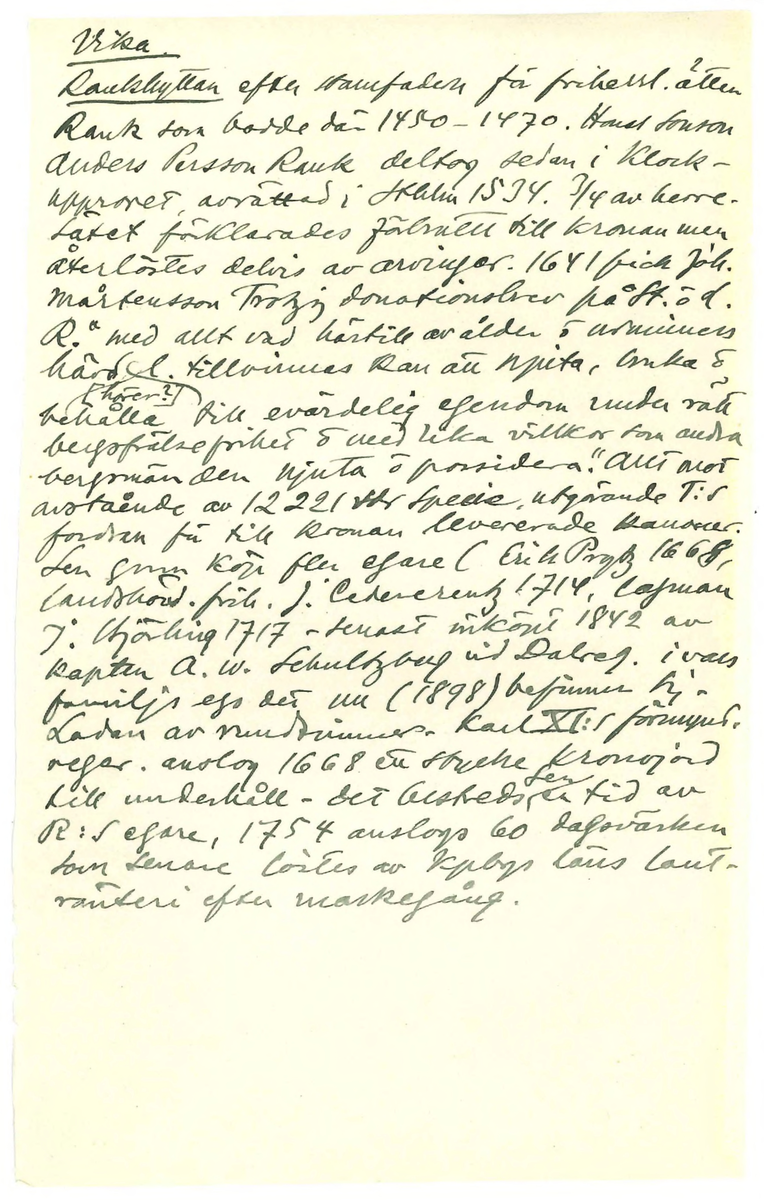 Vika.
Rankhyttan efter stamfadern för friherrl. ätten
Rank som bodde där 1450 – 1470. Hans sonson
Anders Persson Rank deltog sedan i Klock-
upproret, avrättad i Sthlm 1534. 3/4 av herre-
sätet förklarades förbrutit till kronan men
återlöstes delvis av arvingar. 1641 fick Joh.
Mårtensson Trotzig donationsbrev på St. ö d.
R." med allt vad härtill av ålder ö urminnes
hävd l. tillvinnas kan att njuta, bruka ö
(hörer?)
behålla till evärdelig egendom under rätt
bergsfrälsefrihet ö med lika villkor som andra
bergsmän den njuta ö possidera." Allt mot
avstående av 12 221 dlr Specie, utgörande T:s
fordran för till kronan levererade kanoner.
Sen gnm köp fler egare ( Erik Prytz 1668,
landshövd. frih. J. Cedercreutz 1714, lagman
J. Hjörling 1717 – senast inköpt 1842 av
kapten A. W. Schultzberg vid Dalreg. i vars
familjs ego det nu (1898) befinner sij –
Ladan av rundtimmer. Karl XI:s förmynd.
reger. anslog 1668 ett stycke kronojord
till underhåll – det bestreds sen en tid av
R:s egare, 1754 anslogs 60 dagsvärken
som senare löstes av Kpbgs läns lant-
ränteri efter markegång.